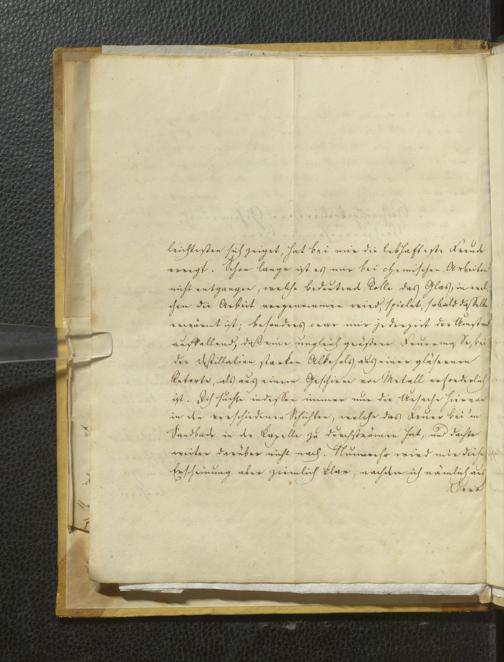 leichtesten sich zeiget, hat bei mir die lebhafteste Freude
erregt. Schon lange ist es mir bei chemischen Arbeiten
nicht entgangen, welche bedeutende Rolle das Glas, in wel-
chen die Arbeit vorgenommen wird, spielet, sobald dasselbe
erwärmt ist; besonders war mir jederzeit der Umstand
auffallend, daß eine ungleich größere Feuerung bei
der Destillation starken Alkohols, aus einer gläsernen
Retorte, als aus einem Geschirr von Metall erforderlich
ist. Ich suchte indessen immer nur die Ursache hiervon
in den verschiedenen Schichten, welche das Feuer bei'm
Sandbade in der Capelle zu durchströmen hat, und dachte
weiter darüber nicht nach. Nunmehr wird mir diese
Erscheinung aber ziemlich klar, nachdem ich nämlich aus